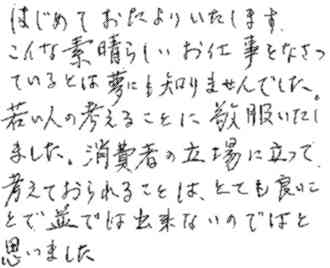 はじめておたよりいたします、
こんな素晴らしいお仕事をなさっ
ているとは夢にも知りませんでした。
若い人の考えることに敬服いたし
ました。消費者の立場に立って、
考えておられることは、とても良いこ
とで並では出来ないのではと
思いました